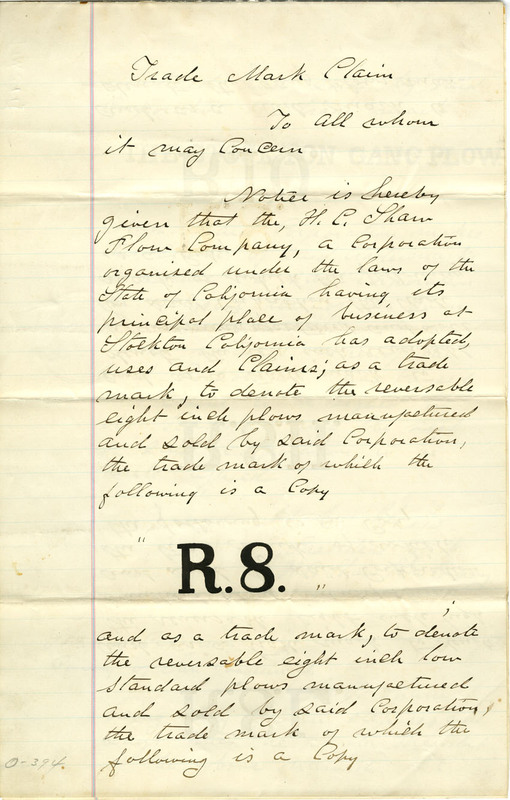 Trade Mark Claim
To all whom
it may Concern
Notice is hereby
given that the, H. C. Shaw
Plow Company, a Corporation
organised under the laws of the
State of California having its
principal place of business at
Stockton California has adopted,
uses and Claims; as a trade
mark, to denote the reversable
eight inch plows manufactured
and sold by said Corporation,
the trade mark of which the
following is a Copy
" R.8. "
;
and as a trade mark, to denote
the reversable eight inch low
standard plows manufactured
and sold by said Corporation,
the trade mark of which the
following is a Copy
O-394.